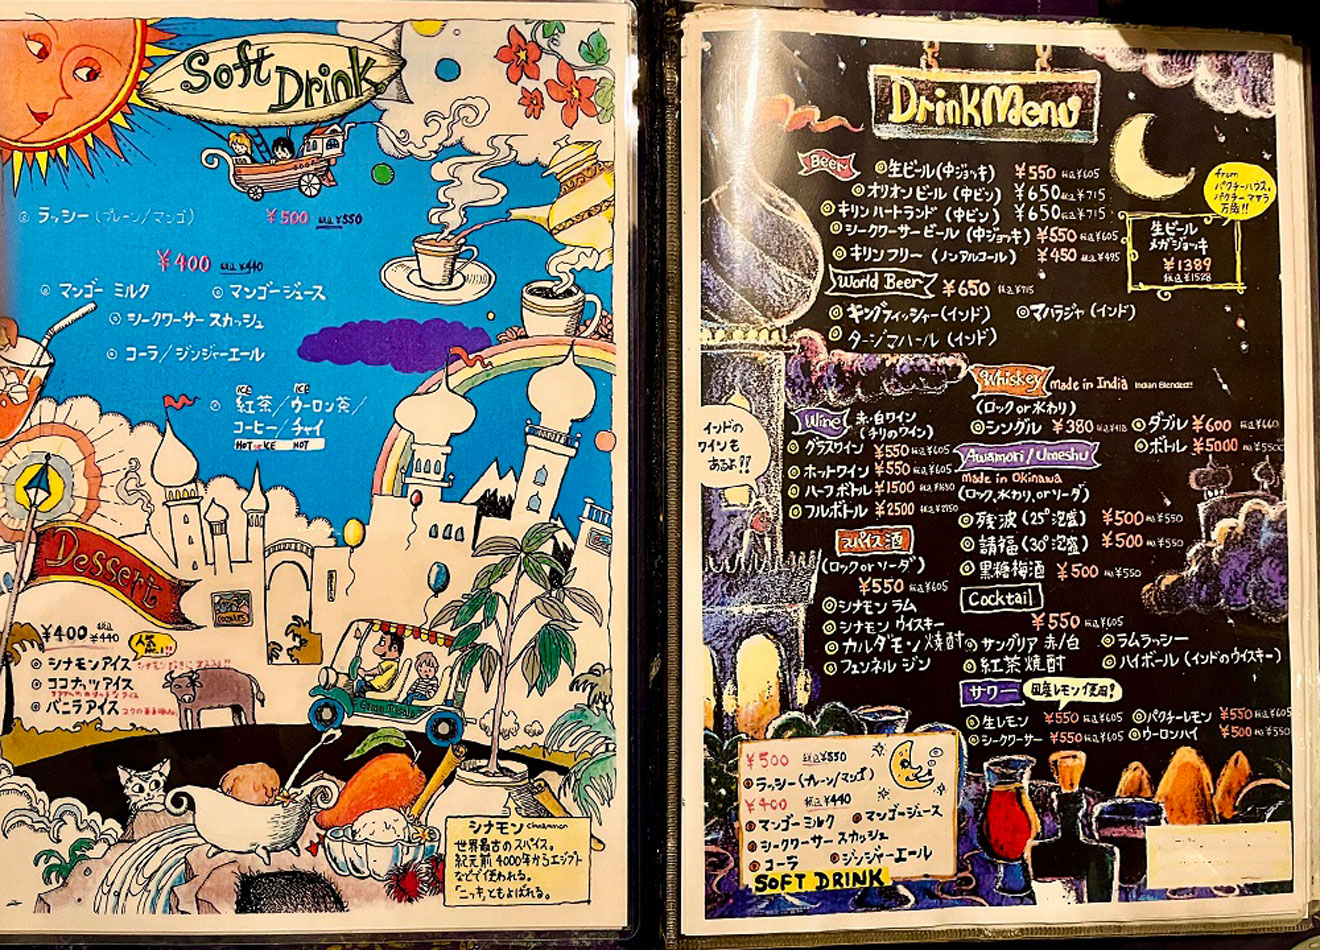 Soft Drink
◎ ラッシー(プレーン/マンゴ) ¥500 税込¥550
¥400 税込¥440
◎ マンゴー ミルク ◎ マンゴージュース
◎ シークワーサー スカッシュ
◎ コーラ/ジンジャーエール
ICE ICE
◎ 紅茶/ウーロン茶/
コーヒー/チャイ
HOT or ICE HOT
Dessert
¥400 税込¥440
◎ シナモンアイス
◎ ココナッツアイス
◎ バニラアイス
シナモン cinnamon
世界最古のスパイス。
紀元前4000年からエジプト
などで使われる。
「ニッキ」ともよばれる。
Drink Menu
Beer
◎ 生ビール(中ジョッキ) ¥550 税込¥605
◎ オリオンビール (中ビン) ¥650 税込¥715
◎ キリンハートランド (中ビン) ¥650 税込¥715
◎ シークワーサービール (中ジョッキ) ¥550 税込¥605
◎ キリンフリー (ノンアルコール) ¥450 税込¥495
from
パクチーハウス。
パクチーマサラ
万歳!!
生ビール
メガジョッキ
¥1389
税込¥1528
World Beer ¥650 税込¥715
◎ キングフィッシャー(インド) ◎ マハラジャ (インド)
◎ タージマハール (インド)
Whiskey made in India Indian Blended!!
(ロック or 水わり)
◎ シングル ¥380 税込¥418 ◎ ダブル ¥600 税込¥660
◎ ボトル ¥5000 税込¥5500
インドの
ワインも
あるよ??
Wine 赤・白ワイン
(チリのワイン)
◎ グラスワイン ¥550 税込¥605
◎ ホットワイン ¥550 税込¥605
◎ ハーフボトル ¥1500
◎ フルボトル ¥2500 税込¥2750
Awamori/Umeshu
made in Okinawa
(ロック, 水わり, or ソーダ)
◎ 残波 (25°泡盛) ¥500 税込¥550
◎ 請福 (30°泡盛) ¥500 税込¥550
◎ 黒糖梅酒 ¥500 税込¥550
スパイス酒
(ロック or ソーダ)
¥550 税込¥605
◎ シナモン ラム
◎ シナモン ウイスキー
◎ カルダモン 焼酎
◎ フェンネル ジン
Cocktail
¥550 税込¥605
◎ サングリア 赤/白 ◎ ラムラッシー
◎ 紅茶焼酎 ◎ ハイボール (インドのウイスキー)
サワー 国産レモン使用!
◎ 生レモン ¥550 税込¥605 ◎ パクチーレモン ¥550 税込¥605
◎ シークワーサー ¥550 税込¥605 ◎ ウーロンハイ ¥500 税込¥550
¥500 税込¥550
ラッシー(プレーン/マンゴ)
¥400 税込¥440
マンゴーミルク マンゴージュース
シークワーサー スカッシュ
コーラ ジンジャーエール
SOFT DRINK